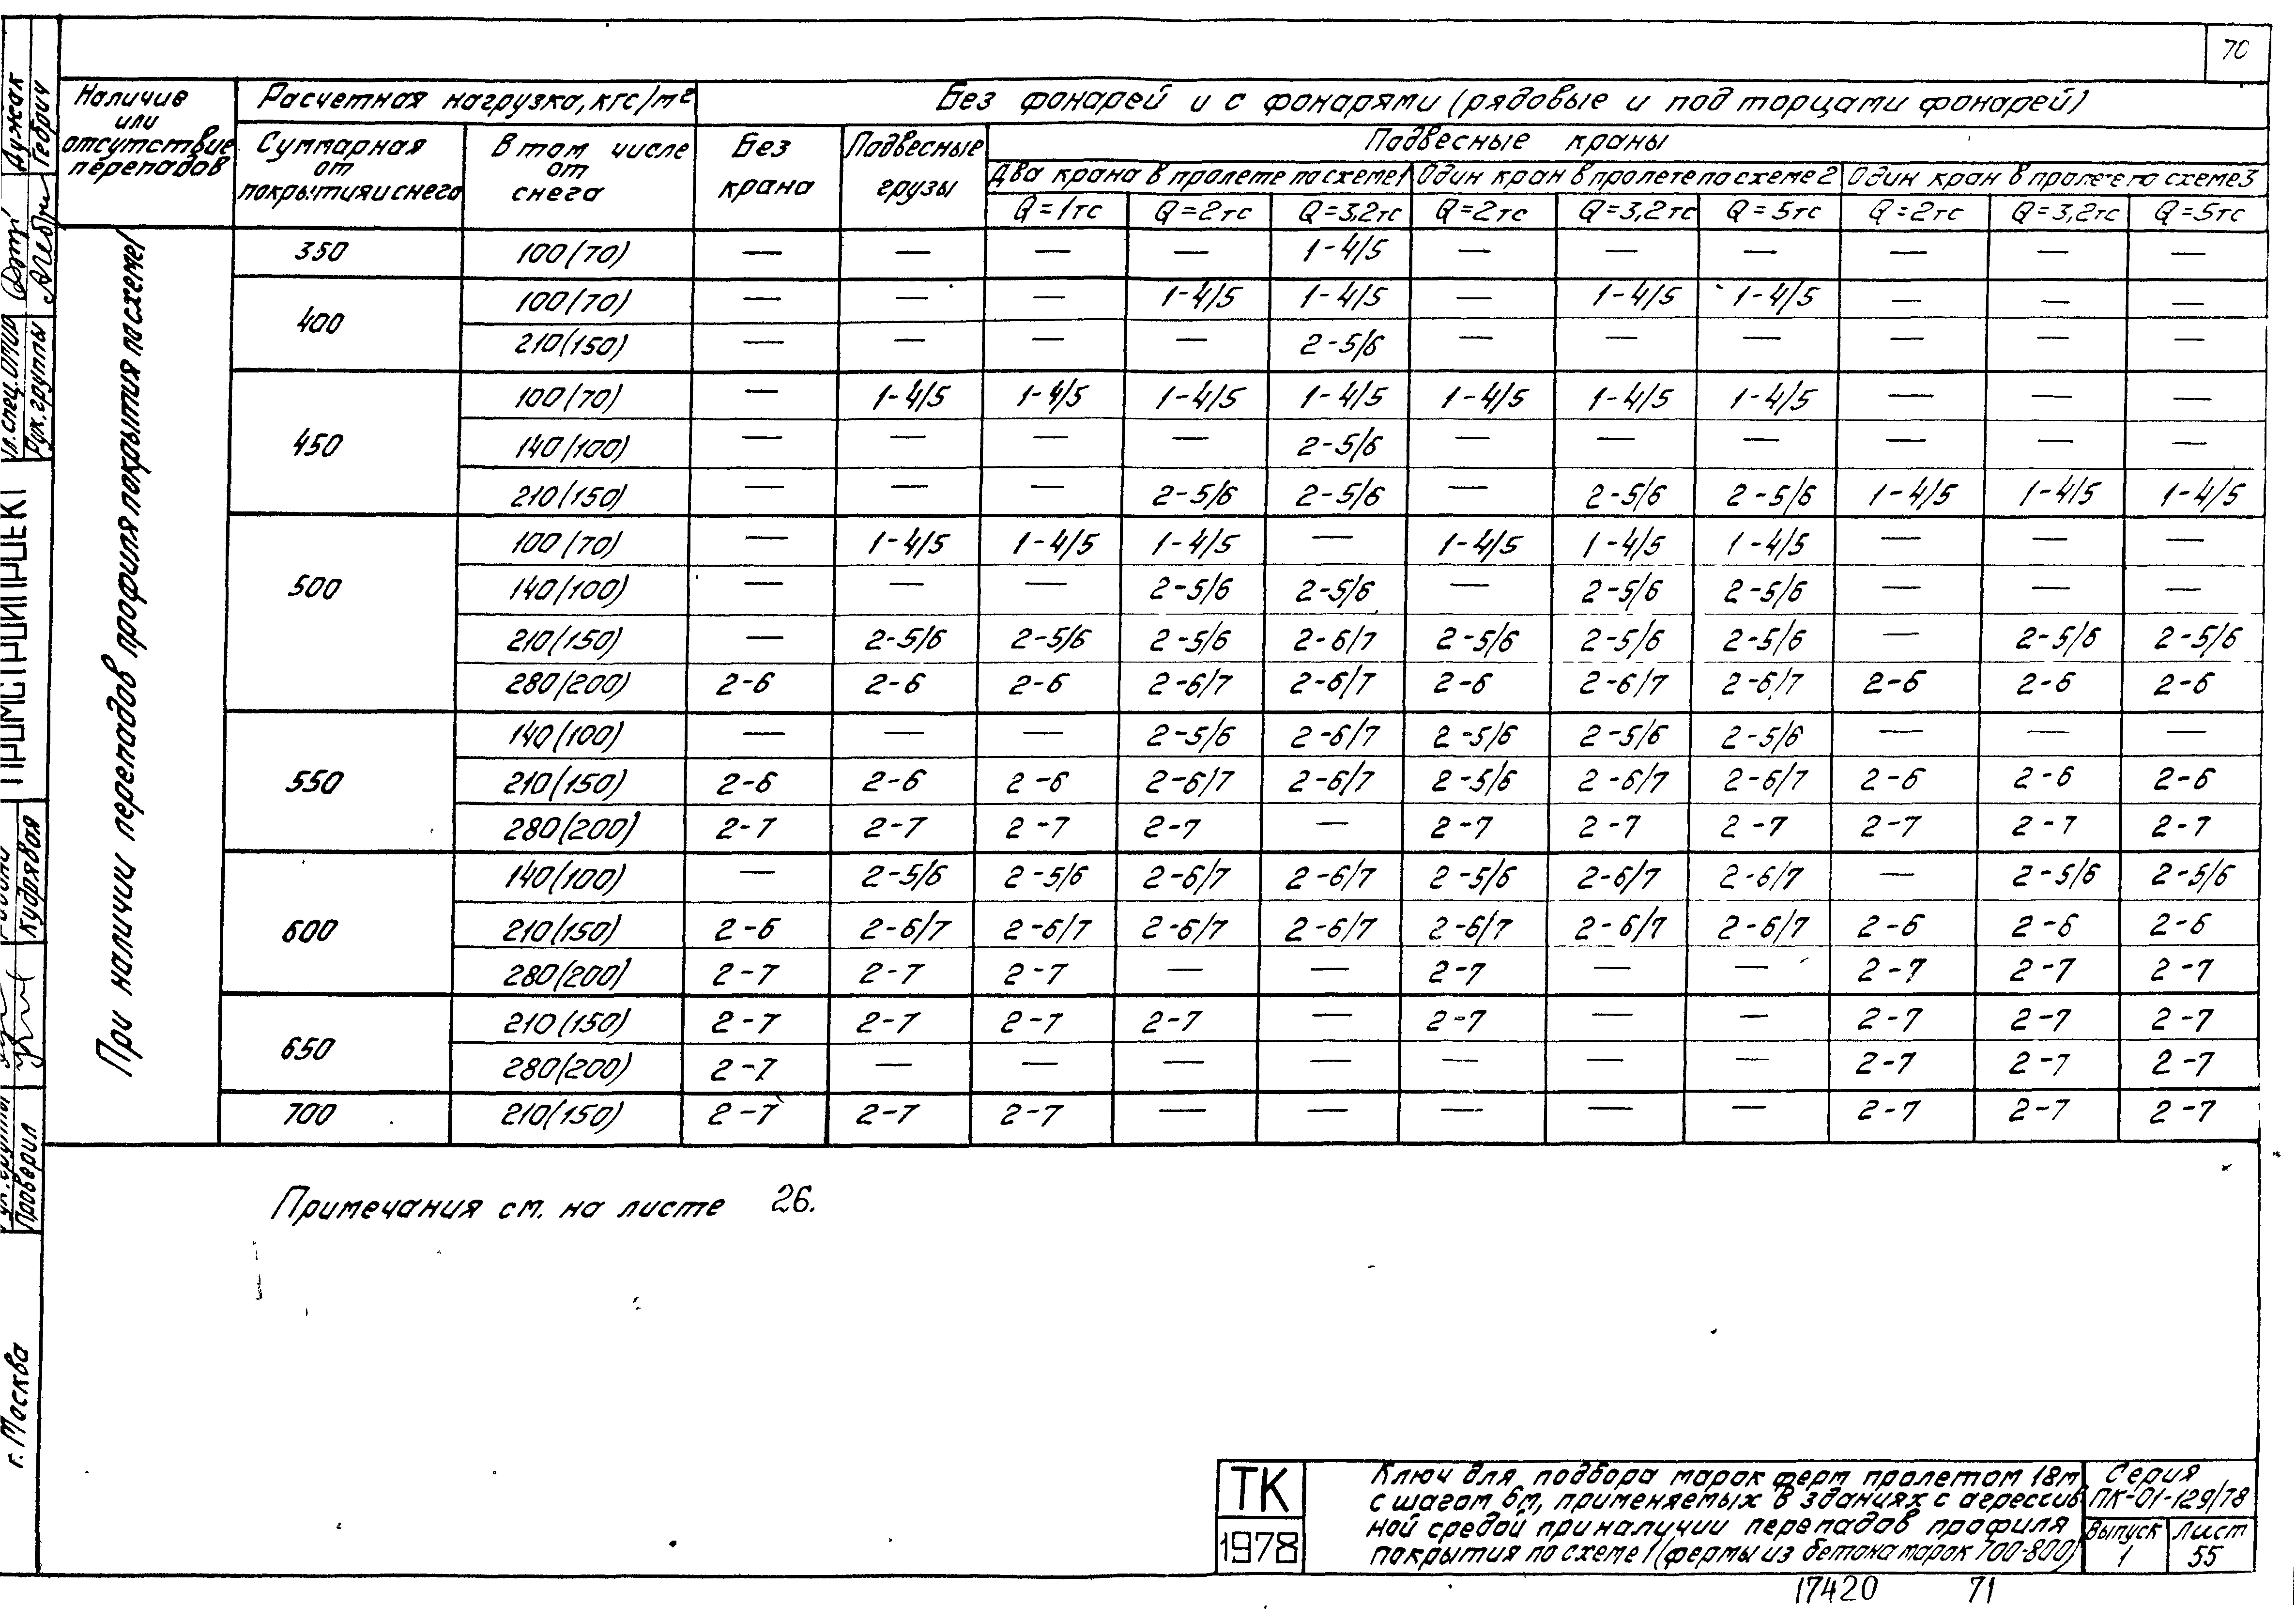 70
Наличие или отсутствие перепадов
Расчетная нагрузка, кгс/м²
Без фонарей и с фонарями (рядовые и под торцами фонарей)
Суммарная от покрытия и снега
В том числе от снега
Без крана
Подвесные грузы
Подвесные краны
Два крана в пролете по схеме 1
Один кран в пролете по схеме 2
Один кран в пролете по схеме 3
Q=1тс Q=2тс Q=3,2тс Q=2тс Q=3,2тс Q=5тс Q=2тс Q=3,2тс Q=5тс
При наличии перепадов профиля покрытия по схеме 1
350 100(70) — — — — 1-4/5 — — — — — —
400 100(70) — — — 1-4/5 1-4/5 — 1-4/5 1-4/5 — — —
210(150) — — — — 2-5/6 — — — — — —
450 100(70) — 1-4/5 1-4/5 1-4/5 1-4/5 1-4/5 1-4/5 1-4/5 — — —
140(100) — — — — 2-5/6 — — — — — —
210(150) — — — 2-5/6 2-5/6 — 2-5/6 2-5/6 1-4/5 1-4/5 1-4/5
500 100(70) — 1-4/5 1-4/5 1-4/5 — 1-4/5 1-4/5 1-4/5 — — —
140(100) — — — 2-5/6 2-5/6 — 2-5/6 2-5/6 — — —
210(150) — 2-5/6 2-5/6 2-5/6 2-6/7 2-5/6 2-5/6 2-5/6 — 2-5/6 2-5/6
280(200) 2-6 2-6 2-6 2-6/7 2-6/7 2-6 2-6/7 2-6/7 2-6 2-6 2-6
550 140(100) — — — 2-5/6 2-6/7 2-5/6 2-5/6 2-5/6 — — —
210(150) 2-6 2-6 2-6 2-6/7 2-6/7 2-5/6 2-6/7 2-6/7 2-6 2-6 2-6
280(200) 2-7 2-7 2-7 2-7 — 2-7 2-7 2-7 2-7 2-7 2-7
600 140(100) — 2-5/6 2-5/6 2-6/7 2-6/7 2-5/6 2-6/7 2-6/7 — 2-5/6 2-5/6
210(150) 2-6 2-6/7 2-6/7 2-6/7 2-6/7 2-6/7 2-6/7 2-6/7 2-6 2-6 2-6
280(200) 2-7 2-7 2-7 — — 2-7 — — 2-7 2-7 2-7
650 210(150) 2-7 2-7 2-7 2-7 — 2-7 — — 2-7 2-7 2-7
280(200) 2-7 — — — — — — — 2-7 2-7 2-7
700 210(150) 2-7 2-7 2-7 — — — — — 2-7 2-7 2-7
Примечания см. на листе 26.
Дужак
Гебрич
Гл.спец.ОТИР
Рук.группы
ПРОМСТРОЙПРОЕКТ
Кудрявая
Проверил
г. Масква
ТК
1978
Ключ для подбора марок ферм пролетом 18м
с шагом 6м, применяемых в зданиях с агрессив
ной средой при наличии перепадов профиля
покрытия по схеме 1 (фермы из бетона марок 700-800)
Серия
ПК-01-129/78
Выпуск 1
Лист 55
17420 71